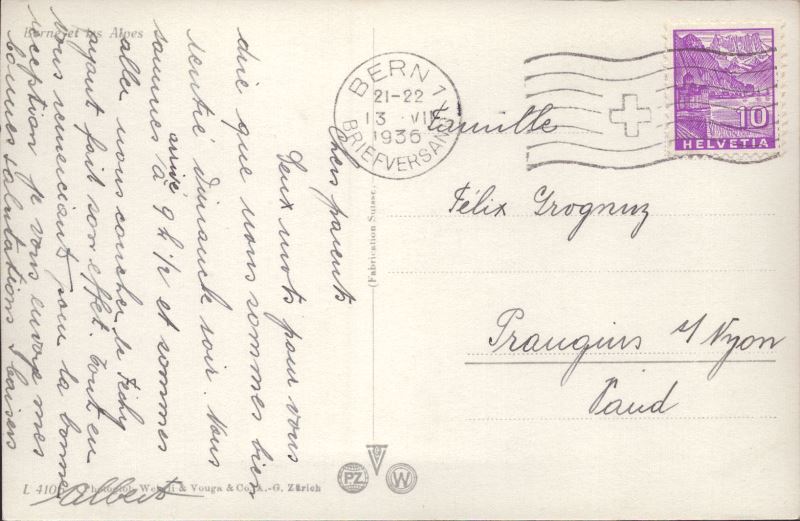 Berne et les Alpes
Chers parents
Deux mots pour vous
dire que nous sommes bien
rentré dimanche soir. Nous
sommes arrivé à 9 h 1/2 et sommes
aller nous coucher le Fechy
ayant fait son effet. Tout en
vous remerciant pour la bonne
réception je vous envoie mes
bonnes salutations & baisers
Albert
BERN 1
21-22
13. VII
1936
BRIEFVERSAND
10
HELVETIA
Famille
Félix Grognuz
Prangins s/ Nyon
Vaud
(Fabrication Suisse.
L 4106 Photoglob-Wehrli & Vouga & Co. A.-G. Zürich
PZ
W